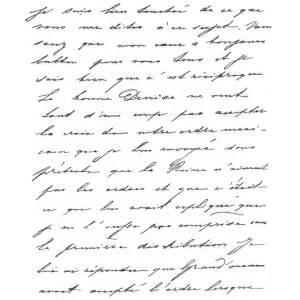 Je suis bien touché de ce que
vous me dites à ce sujet. Vous
savez que mon cœur a toujours
battu pour vous tous et je
sais bien que c'est réciproque
La bonne Denise ne veut
tout d'un coup pas accepter
la croix de notre ordre
que je lui envoyé sous
prétexte que la Reine n'aimait
pas les ordres et que c'était
ce que lui avait expliqué que
je ne l'ai pas comprise
la première distribution Je
lui ai répondre que Grand'maman
avait accepté l'ordre lorsque